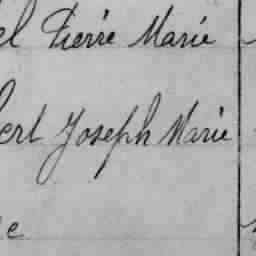 el Pierre Marie
bert Joseph Marie
e